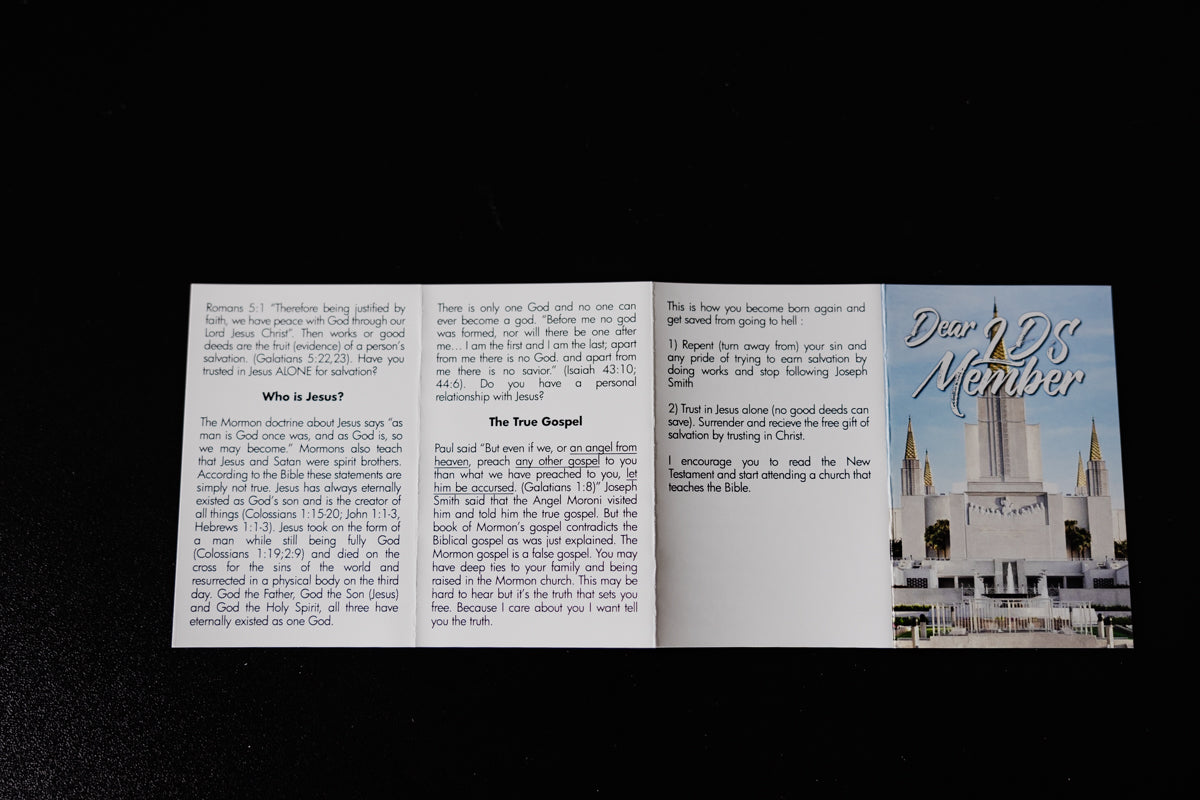 Romans 5:1 “Therefore being justified by
faith, we have peace with God through our
Lord Jesus Christ”. Then works or good
deeds are the fruit (evidence) of a person’s
salvation. (Galatians 5:22,23). Have you
trusted in Jesus ALONE for salvation?
Who is Jesus?
The Mormon doctrine about Jesus says “as
man is God once was, and as God is, so
we may become.” Mormons also teach
that Jesus and Satan were spirit brothers.
According to the Bible these statements are
simply not true. Jesus has always eternally
existed as God’s son and is the creator of
all things (Colossians 1:15-20; John 1:1-3,
Hebrews 1:1-3). Jesus took on the form of
a man while still being fully God
(Colossians 1:19;2:9) and died on the
cross for the sins of the world and
resurrected in a physical body on the third
day. God the Father, God the Son (Jesus)
and God the Holy Spirit, all three have
eternally existed as one God.
There is only one God and no one can
ever become a god. “Before me no god
was formed, nor will there be one after
me... I am the first and I am the last; apart
from me there is no God. and apart from
me there is no savior.” (Isaiah 43:10;
44:6). Do you have a personal
relationship with Jesus?
The True Gospel
Paul said “But even if we, or an angel from
heaven, preach any other gospel to you
than what we have preached to you, let
him be accursed. (Galatians 1:8)” Joseph
Smith said that the Angel Moroni visited
him and told him the true gospel. But the
book of Mormon’s gospel contradicts the
Biblical gospel as was just explained. The
Mormon gospel is a false gospel. You may
have deep ties to your family and being
raised in the Mormon church. This may be
hard to hear but it’s the truth that sets you
free. Because I care about you I want tell
you the truth.
This is how you become born again and
get saved from going to hell :
1) Repent (turn away from) your sin and
any pride of trying to earn salvation by
doing works and stop following Joseph
Smith
2) Trust in Jesus alone (no good deeds can
save). Surrender and recieve the free gift of
salvation by trusting in Christ.
I encourage you to read the New
Testament and start attending a church that
teaches the Bible.
Dear LDS
Member